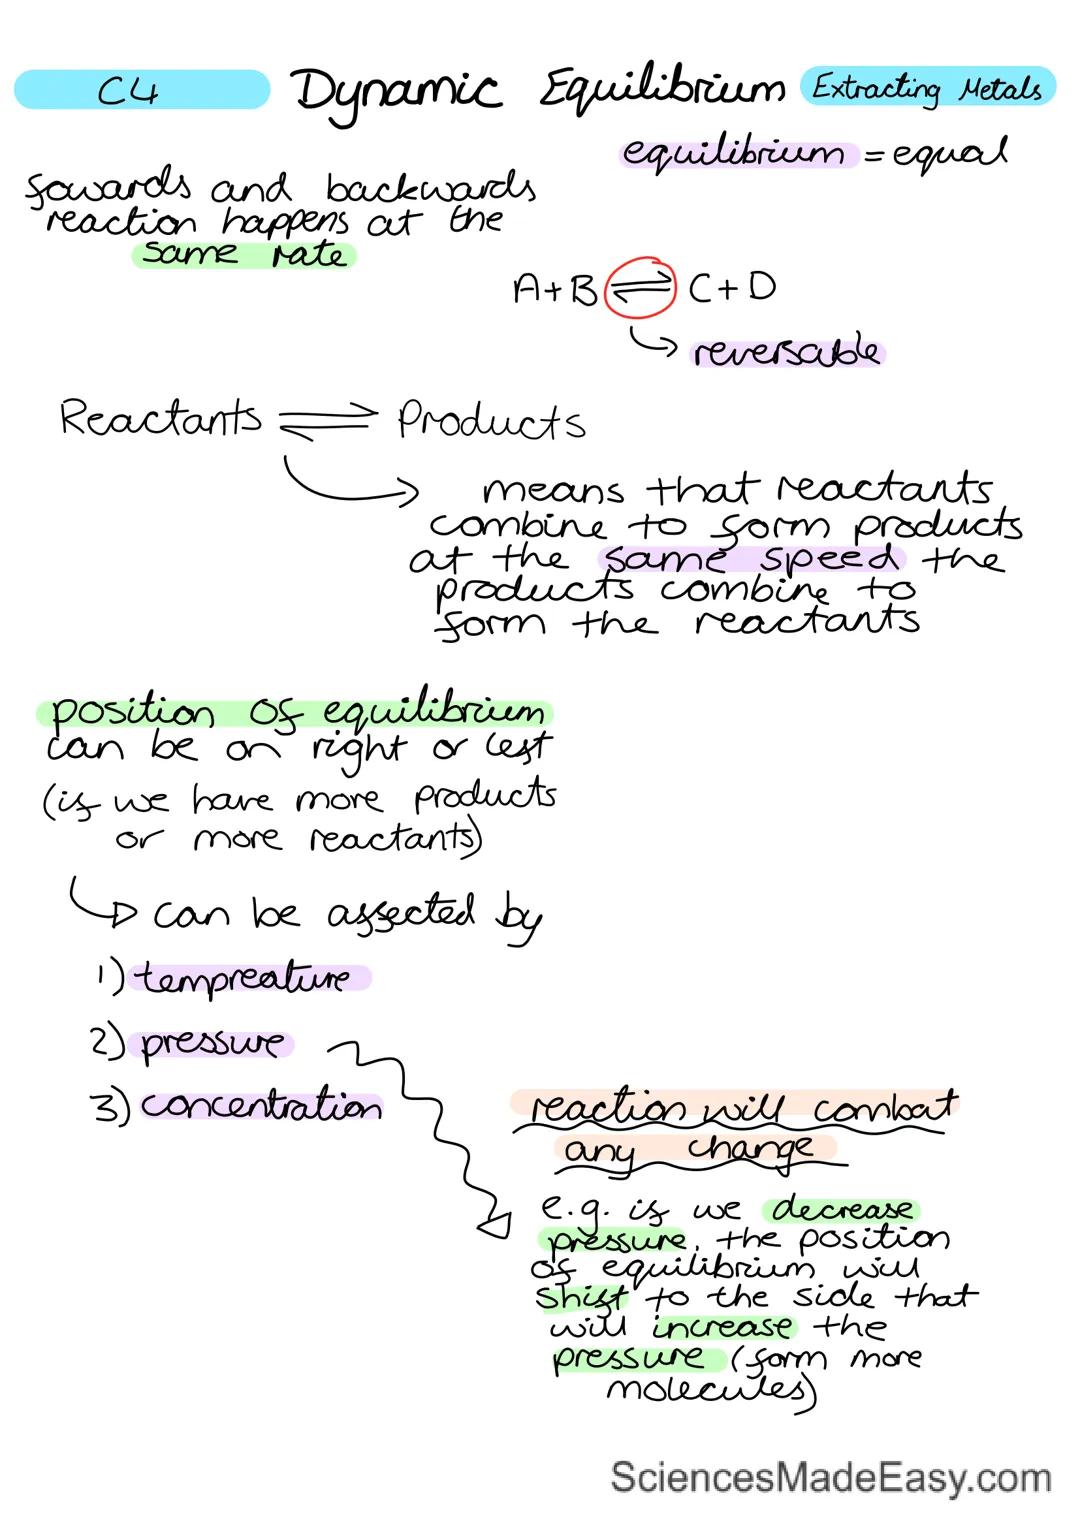 C4
Dynamic Equilibrium
Extracting Metals
equilibrium = equal
fowards and backwards
reaction happens at the
same rate
A+B ⇌ C+D
reversable
Reactants ⇌ Products
means that reactants
combine to form products
at the same speed the
products combine to
form the reactants
position of equilibrium
can be on right or left
(if we have more products
or more reactants)
can be affected by
1) tempreature
2) pressure
3) concentration
reaction will combat
any change
e.g. if we decrease
pressure, the position
of equilibrium will
shift to the side that
will increase the
pressure (form more
molecules)
SciencesMadeEasy.com